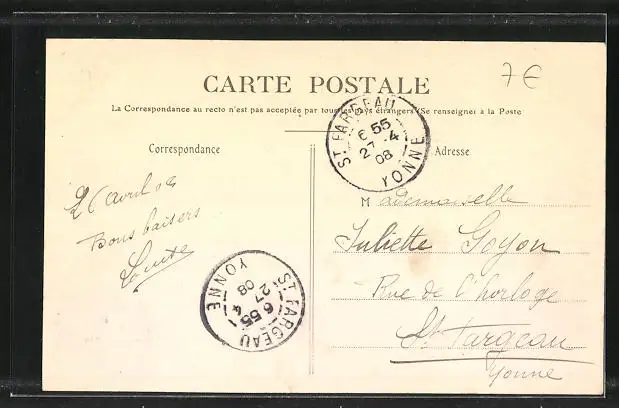 7€
CARTE POSTALE
La Correspondance au recto n'est pas acceptée par tous les pays étrangers (Se renseigner à la Poste
Correspondance
Adresse
ST FARGEAU
6 55
27 -4
08
YONNE
26 avril 08
Bons baisers
Mademoiselle
Juliette Goyon
Rue de l'horloge
St Fargeau
Yonne
ST FARGEAU
6 55
27 4
08
YONNE